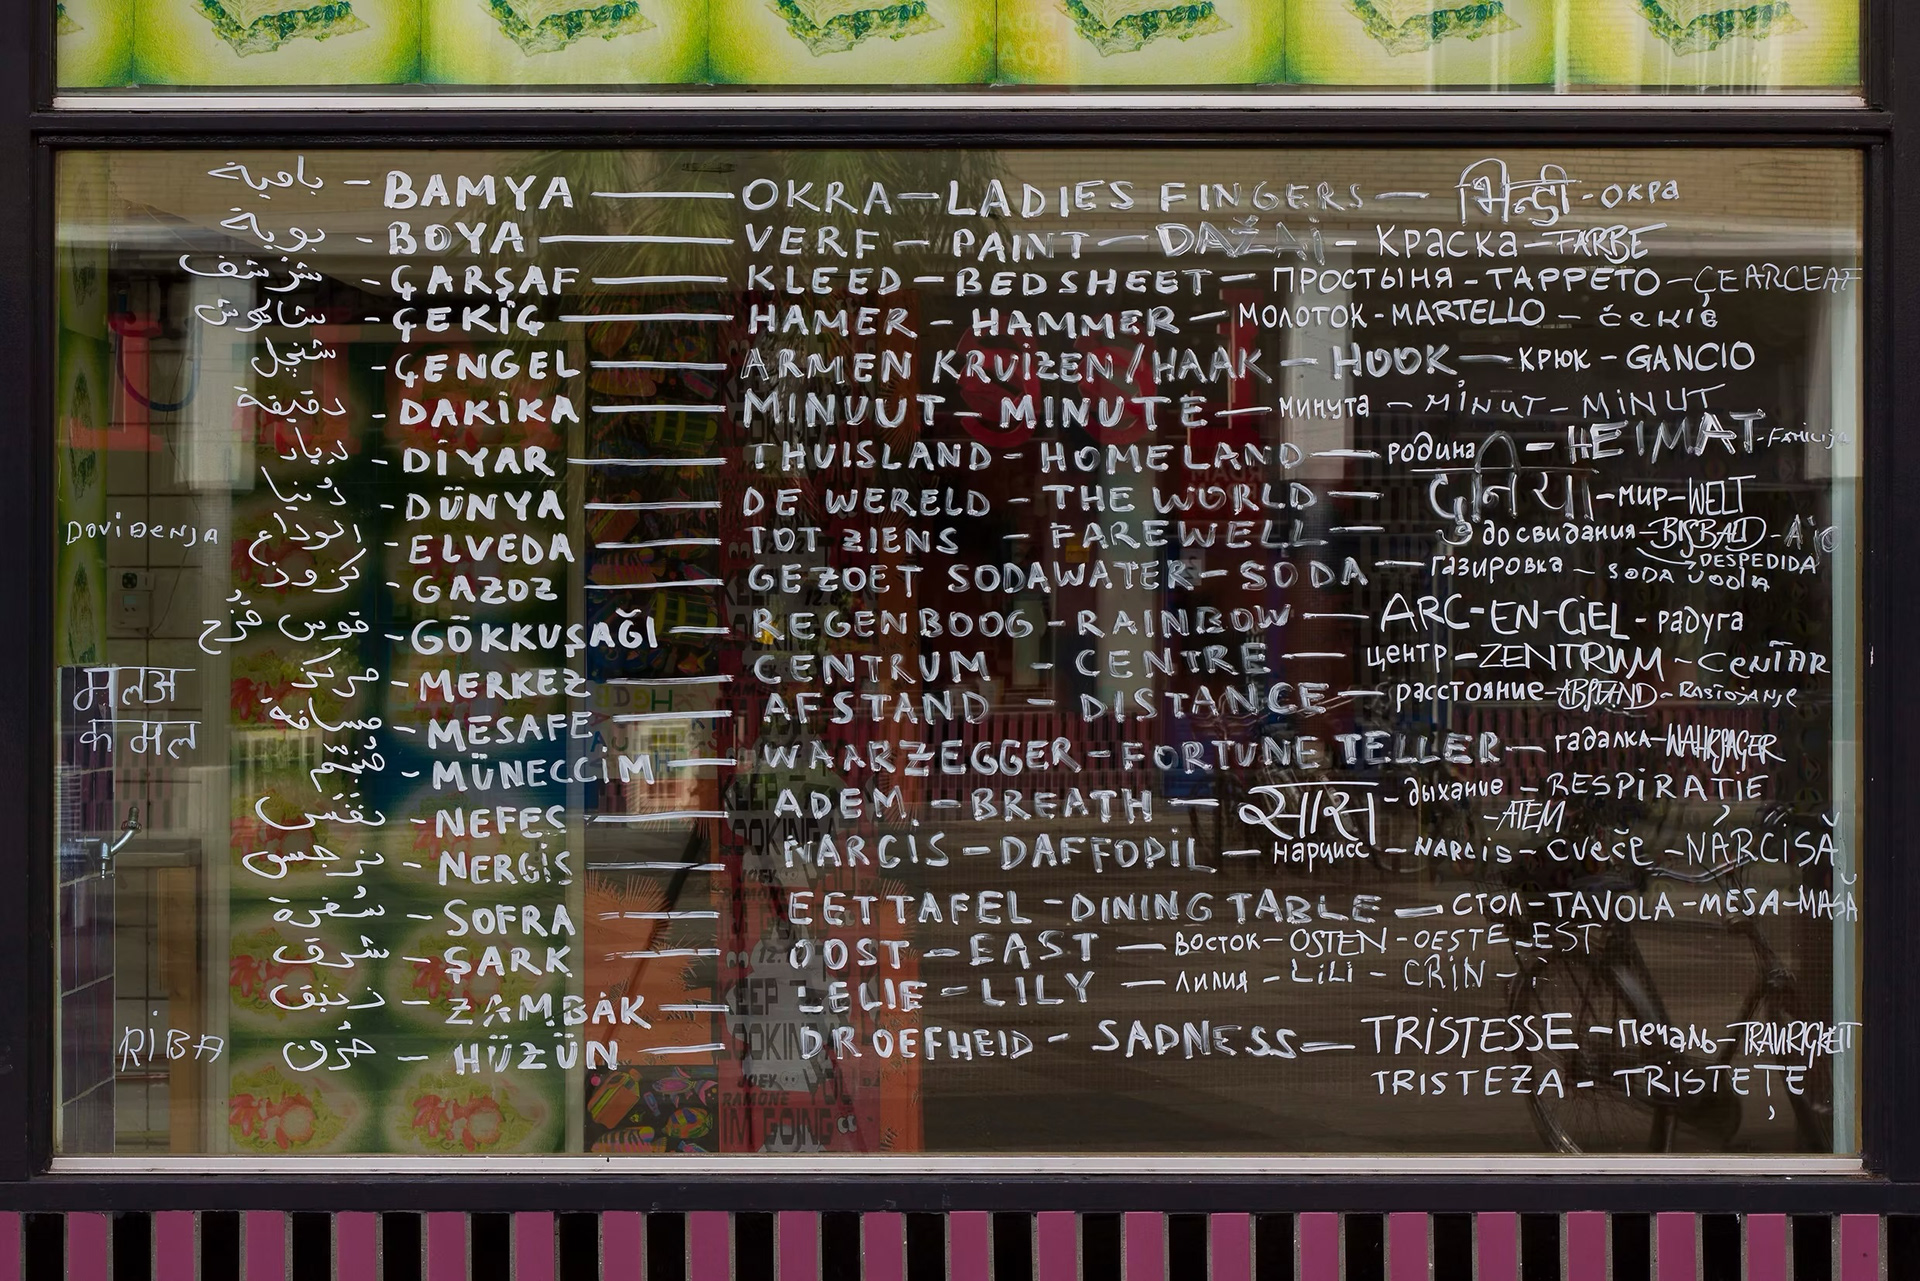 بامية - BAMYA — OKRA — LADIES FINGERS — भिन्डी - окра
بوية - BOYA — VERF - PAINT - DAŽAI - Краска - FARBE
شرشف - ÇARŞAF — KLEED - BEDSHEET - ПРОСТЫНЯ - TAPPETO - ÇEARCEAF
شاكوش - ÇEKİÇ — HAMER - HAMMER - МОЛОТОК - MARTELLO - čekić
شنجل - ÇENGEL — ARMEN KRUIZEN/HAAK - HOOK — крюк - GANCIO
دقيقة - DAKİKA — MINUUT - MINUTE — минута - MINUT - MINUT
ديار - DİYAR — THUISLAND - HOMELAND — родина - HEIMAT
دونيا - DÜNYA — DE WERELD - THE WORLD — दुनिया - мир - WELT
DOVIĐENJA الوداع - ELVEDA — TOT ZIENS - FAREWELL — до свидания - BISBALD
DESPEDIDA
كزوز - GAZOZ — GEZOET SODAWATER - SODA — газировка - SODA VODA
قوس قزح - GÖKKUŞAĞI — REGENBOOG - RAINBOW — ARC-EN-CIEL - радуга
مركز - MERKEZ — CENTRUM - CENTRE — центр - ZENTRUM - CENTAR
मलअ
कमल
مسافة - MESAFE — AFSTAND - DISTANCE — расстояние - ABSTAND - RASTOJANJE
منجم - MÜNECCİM — WAARZEGGER - FORTUNE TELLER — гадалка - WAHRSAGER
نفس - NEFES — ADEM - BREATH — सास - дыхание - RESPIRAȚIE
- ATEM
نرجس - NERGİS — NARCIS - DAFFODIL — нарцисс - NARCIS - CVEĆE - NARCISĂ
سفرة - SOFRA — EETTAFEL - DINING TABLE — СТОЛ - TAVOLA - MESA - MASĂ
شرق - ŞARK — OOST - EAST — ВОСТОК - OSTEN - OESTE - EST
زنبق - ZAMBAK — LELIE - LILY — лилия - LiLi - CRIN -
RIBA حزن - HÜZÜN — DROEFHEID - SADNESS — TRISTESSE - Печаль - TRAURIGKEIT
TRISTEZA - TRISTEȚE